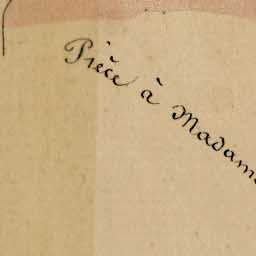 Pièce à Madame